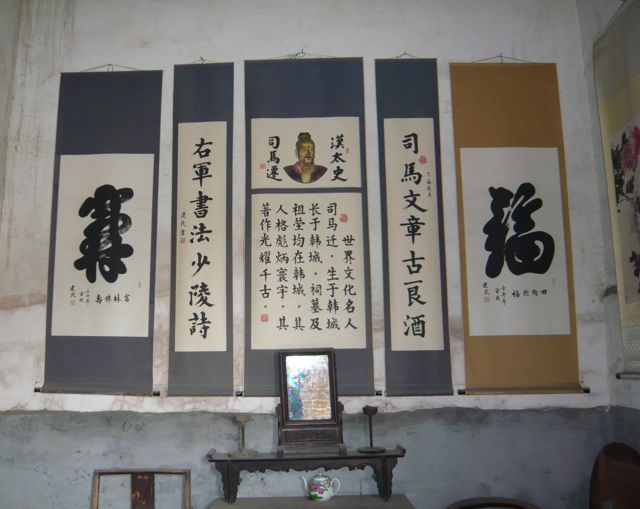 福
建民
司馬文章古艮酒
漢太史
司馬遷
世界文化名人
司马迁，生于韩城
长于韩城，祠墓及
祖茔均在韩城，其
人格彪炳寰宇，其
著作光耀千古。
右軍書法少陵詩
建民書
壽
建民